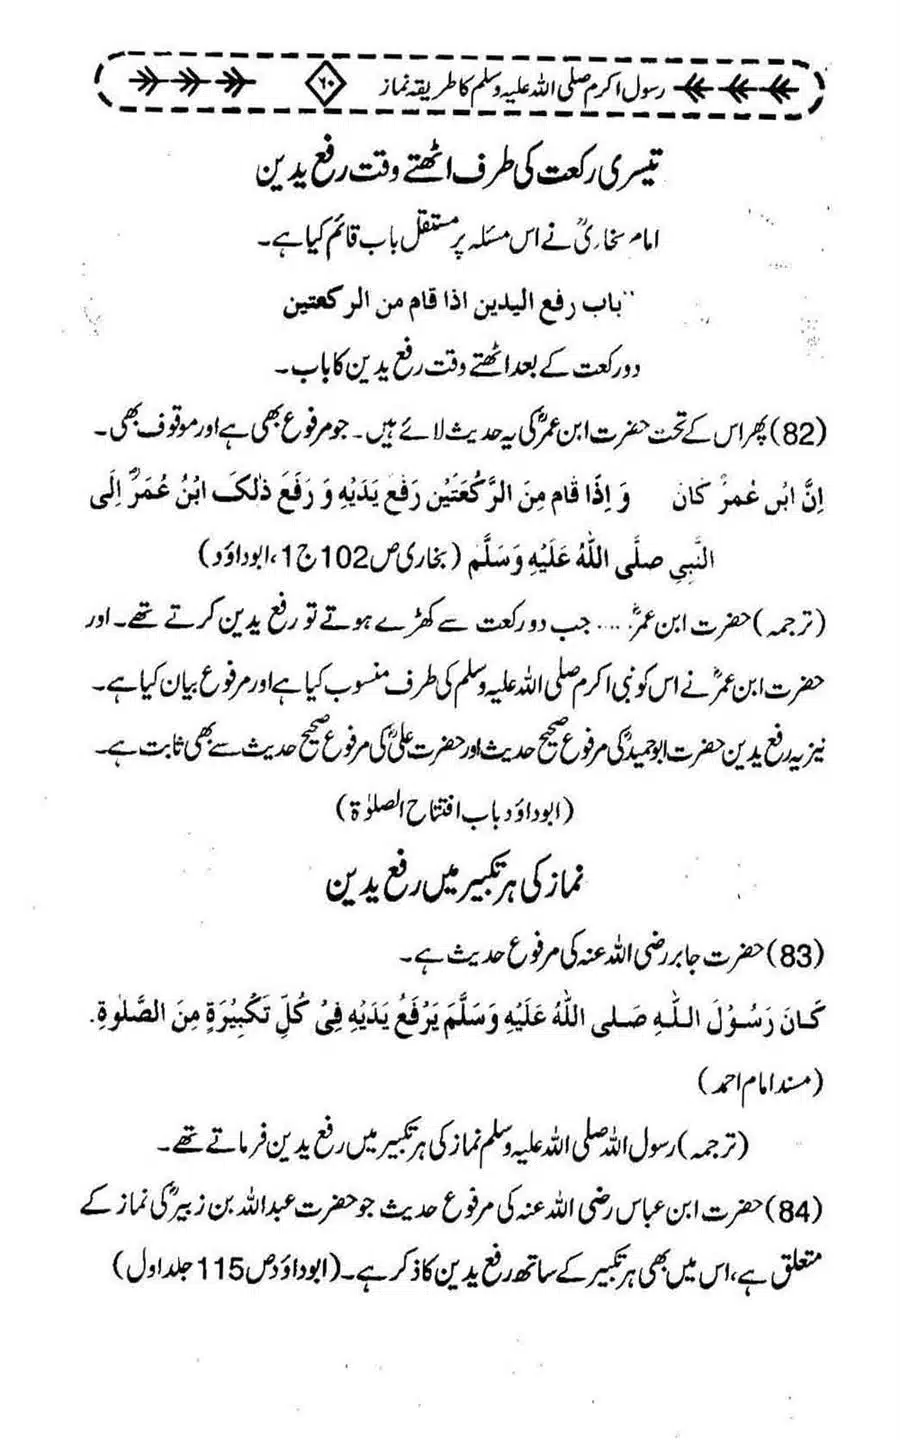 رسول اکرم صلی اللہ علیہ وسلم کا طریقہ نماز ۶۰
تیسری رکعت کی طرف اٹھتے وقت رفع یدین
امام بخاریؒ نے اس مسئلہ پر مستقل باب قائم کیا ہے۔
"باب رفع الیدین اذا قام من الرکعتین
دو رکعت کے بعد اٹھتے وقت رفع یدین کا باب۔
(82) پھر اس کے تحت حضرت ابن عمرؓ کی یہ حدیث لائے ہیں۔ جو مرفوع بھی ہے اور موقوف بھی۔
اِنَّ ابْن عُمرؓ کَانَ وَ اِذَا قَام مِنَ الرَّکْعَتَیْن رَفَع یَدَیْهِ وَ رَفَعَ ذٰلِکَ ابْنُ عُمَرؓ اِلَی
النَّبِیِ صلَّی اللّٰهُ عَلَیْهِ وَسَلَّم (بخاری ص 102 ج 1، ابوداؤد)
(ترجمہ) حضرت ابن عمرؓ .... جب دو رکعت سے کھڑے ہوتے تو رفع یدین کرتے تھے۔ اور
حضرت ابن عمرؓ نے اس کو نبی اکرم صلی اللہ علیہ وسلم کی طرف منسوب کیا ہے اور مرفوع بیان کیا ہے۔
نیز یہ رفع یدین حضرت ابوحمیدؓ کی مرفوع صحیح حدیث اور حضرت علیؓ کی مرفوع صحیح حدیث سے بھی ثابت ہے۔
(ابوداؤد باب افتتاح الصلوٰۃ)
نماز کی ہر تکبیر میں رفع یدین
(83) حضرت جابر رضی اللہ عنہ کی مرفوع حدیث ہے۔
کَانَ رَسُوْلَ اللّٰهِ صَلی اللّٰهُ عَلَیْهِ وَسَلَّمَ یَرْفَعُ یَدَیْهِ فِیْ کُلِّ تَکْبِیْرَةٍ مِنَ الصَّلٰوةِ.
(مسند امام احمد)
(ترجمہ) رسول اللہ صلی اللہ علیہ وسلم نماز کی ہر تکبیر میں رفع یدین فرماتے تھے۔
(84) حضرت ابن عباس رضی اللہ عنہ کی مرفوع حدیث جو حضرت عبداللہ بن زبیرؓ کی نماز کے
متعلق ہے، اس میں بھی ہر تکبیر کے ساتھ رفع یدین کا ذکر ہے۔ (ابوداؤد ص 115 جلد اول)